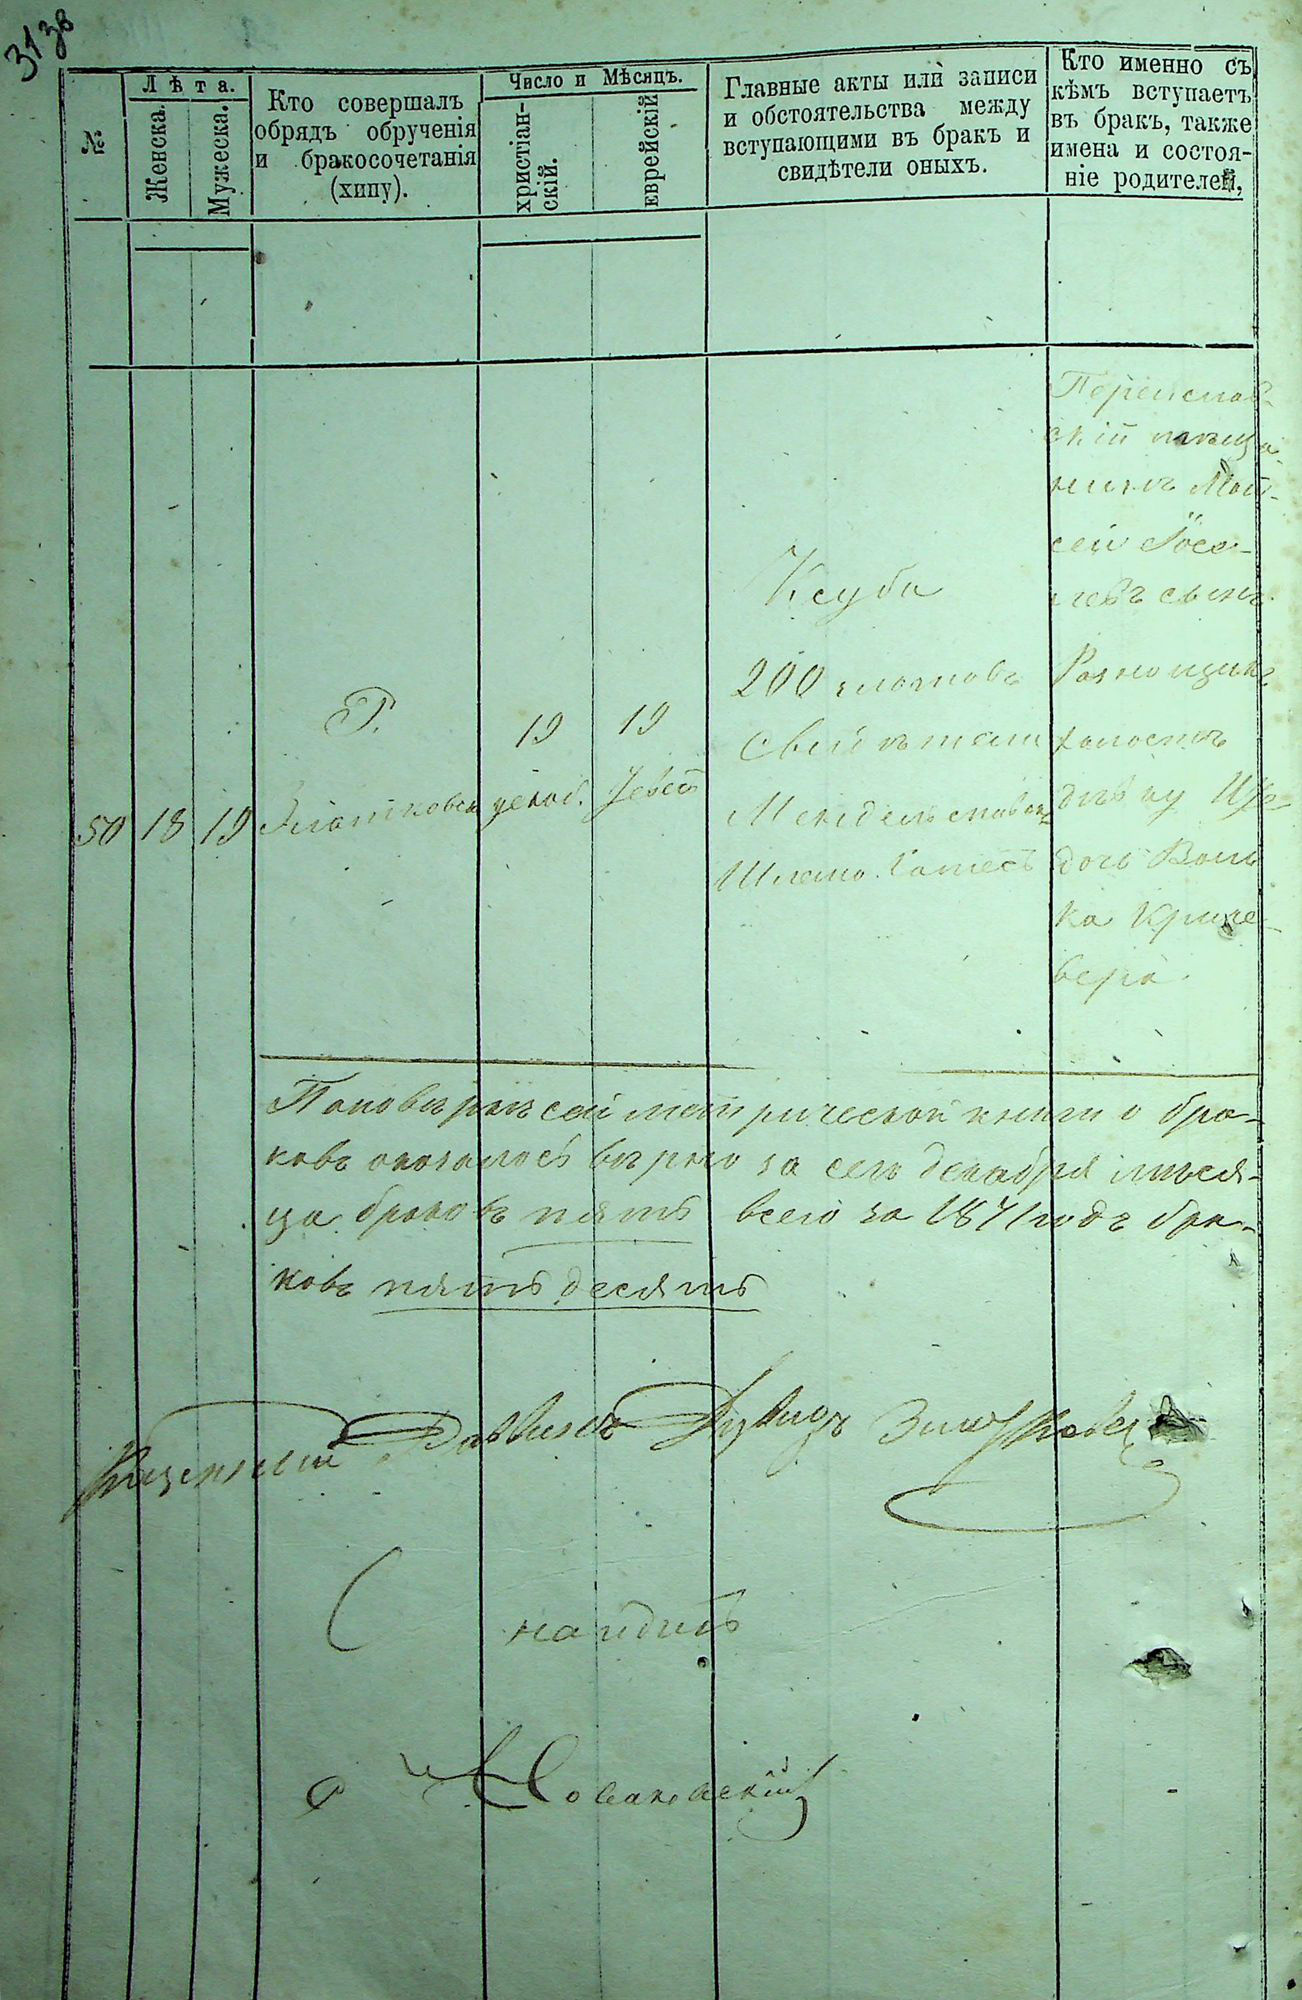 31 зв
№
Лѣта.
Женска.
Мужеска.
Кто совершалъ
обрядъ обрученія
и бракосочетанія
(хипу).
Число и Мѣсяцъ.
христіан-
скій.
еврейскій
Главные акты или записи
и обстоятельства между
вступающими въ бракъ и
свидѣтели оныхъ.
Кто именно съ
кѣмъ вступаетъ
въ бракъ, также
имена и состоя-
ніе родителей,
50
18
19
Р.
Златковск
19
декаб.
19
Тевет
Ксуба
200 злотовъ
Свидѣтели
Мендель
Шлемо
Переяслав-
скій мѣща-
нинъ Мой-
сей Іосе-
левъ сынъ
холостъ
дѣвку
дочь Воль
ка Криче-
вера
По повѣркѣ сей метрической книги о бра-
ковъ оказалось вѣрно за сей декабря мѣся-
ца браковъ пять всего за 1871 годъ бра-
ковъ пять десять
Казенный Раввинъ Давидъ Златковск